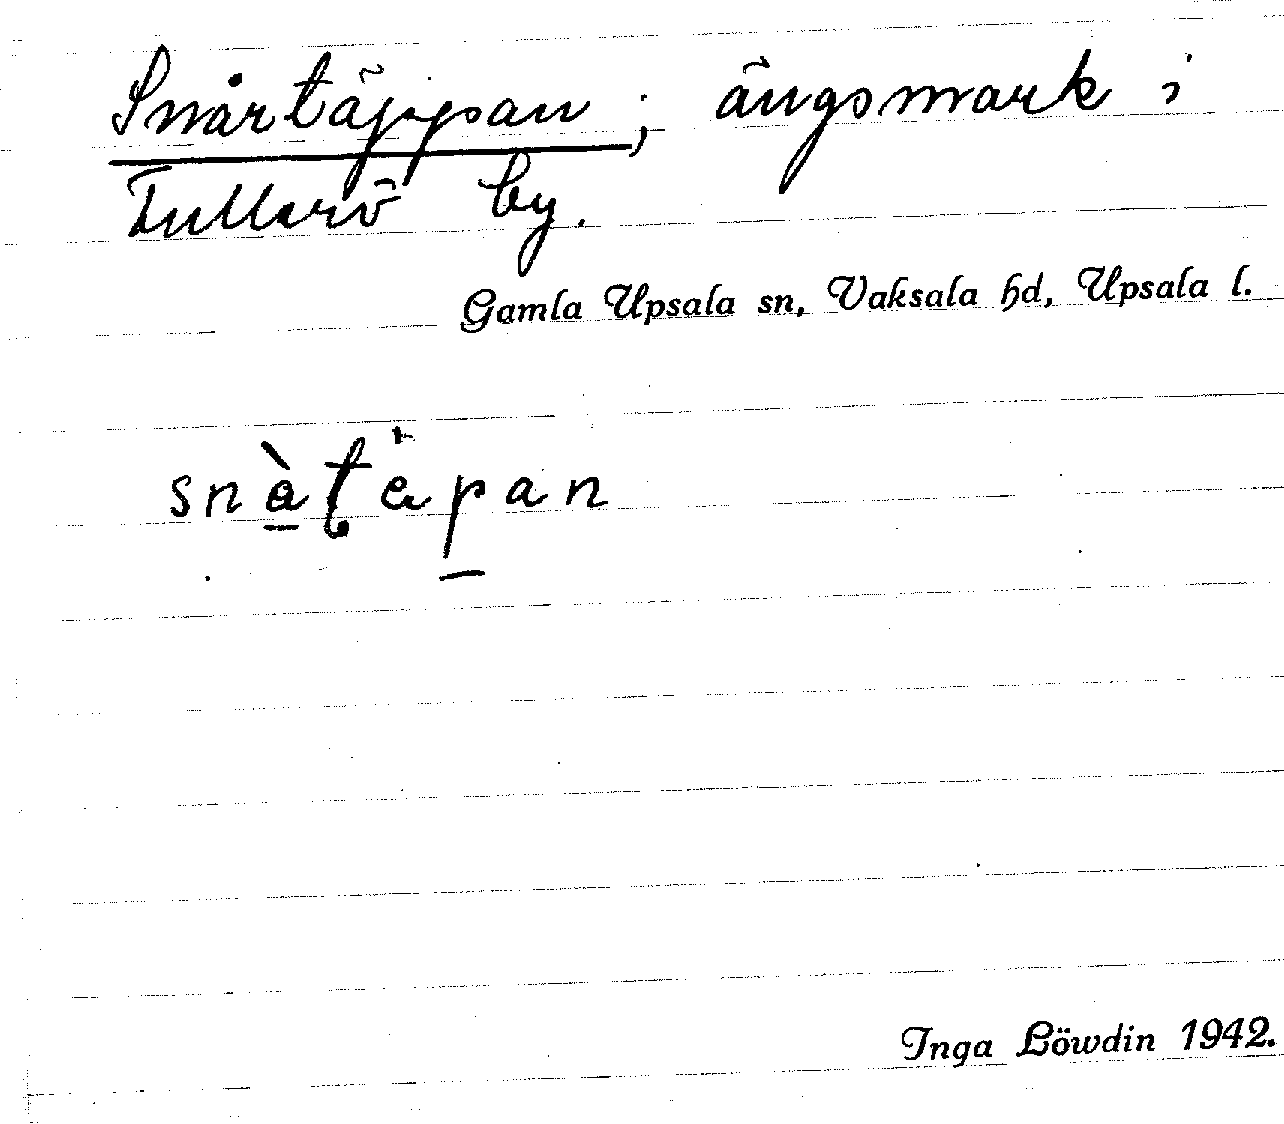 Snårtäppan; ängsmark i
Tullerö by.
Gamla Upsala sn, Vaksala hd, Upsala l.
Inga Löwdin 1942.